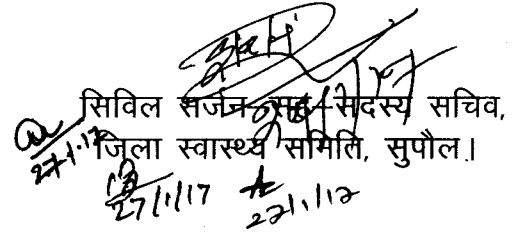 सिविल सर्जन-सह-सदस्य सचिव,
जिला स्वास्थ्य समिति, सुपौल।
27.1.17
27/1/17
27/1/17